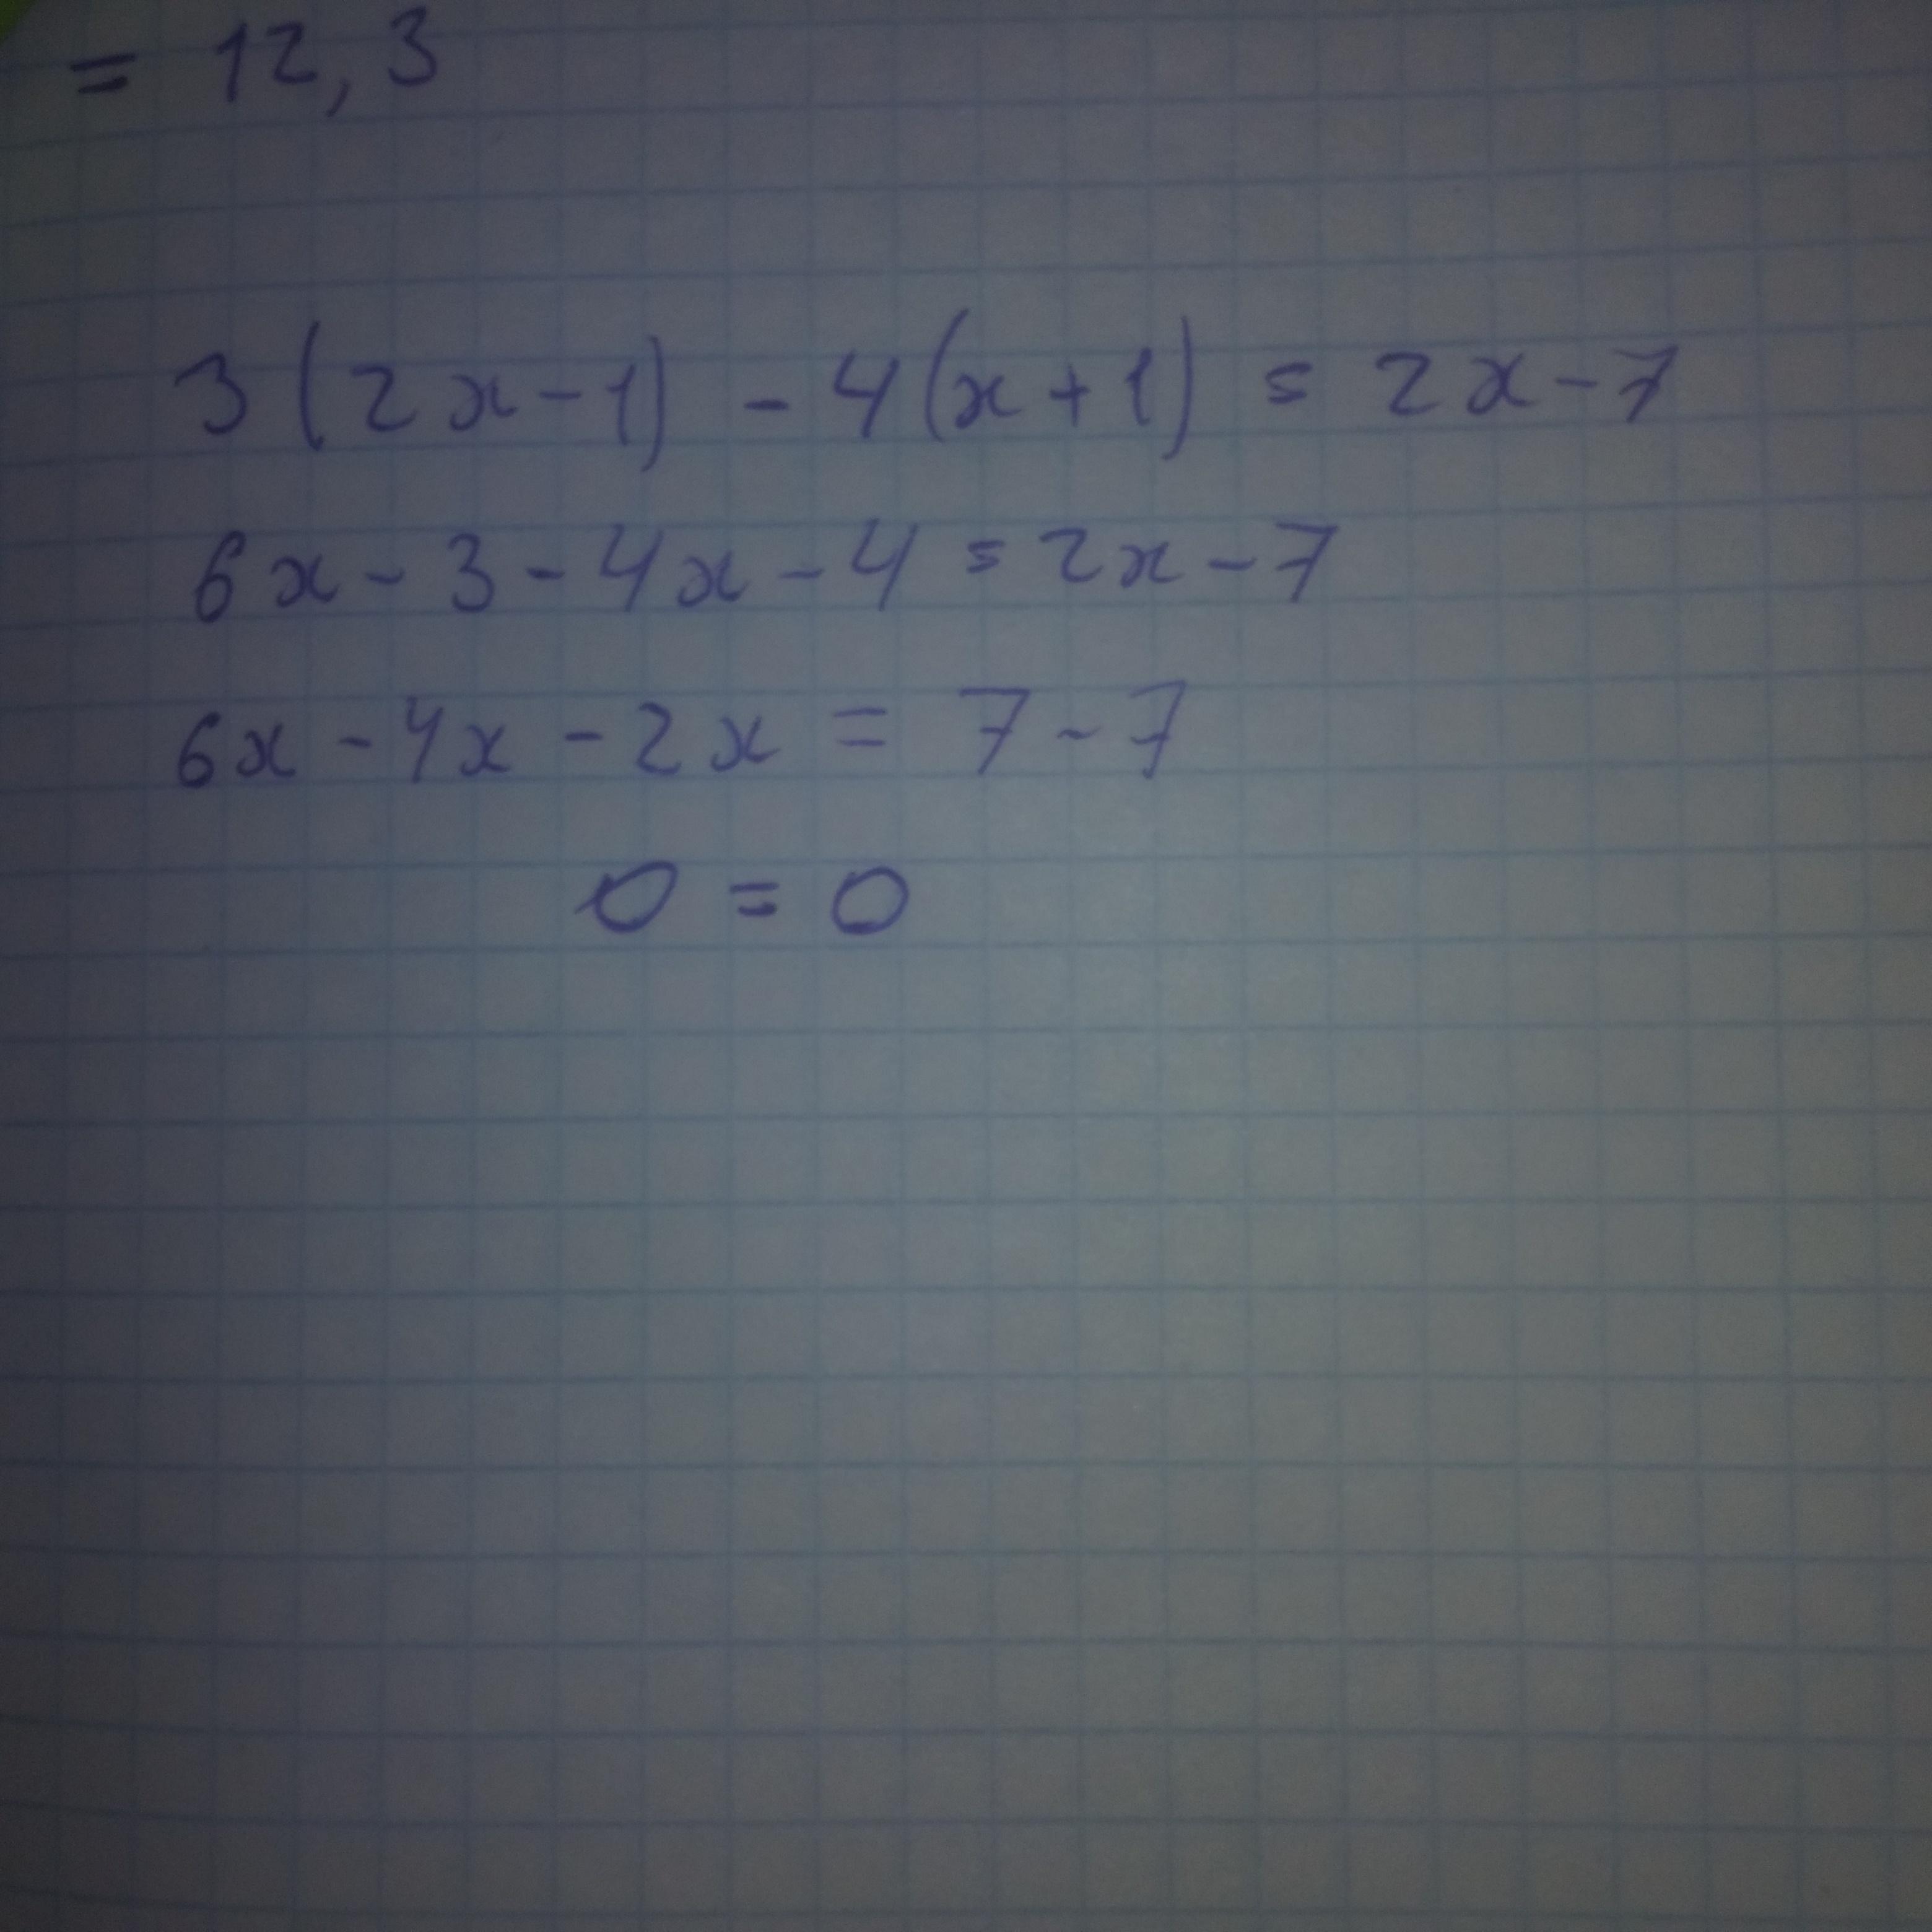 = 12,3
3(2x-1) - 4(x+1) = 2x-7
6x - 3 - 4x - 4 = 2x - 7
6x - 4x - 2x = 7 - 7
0 = 0